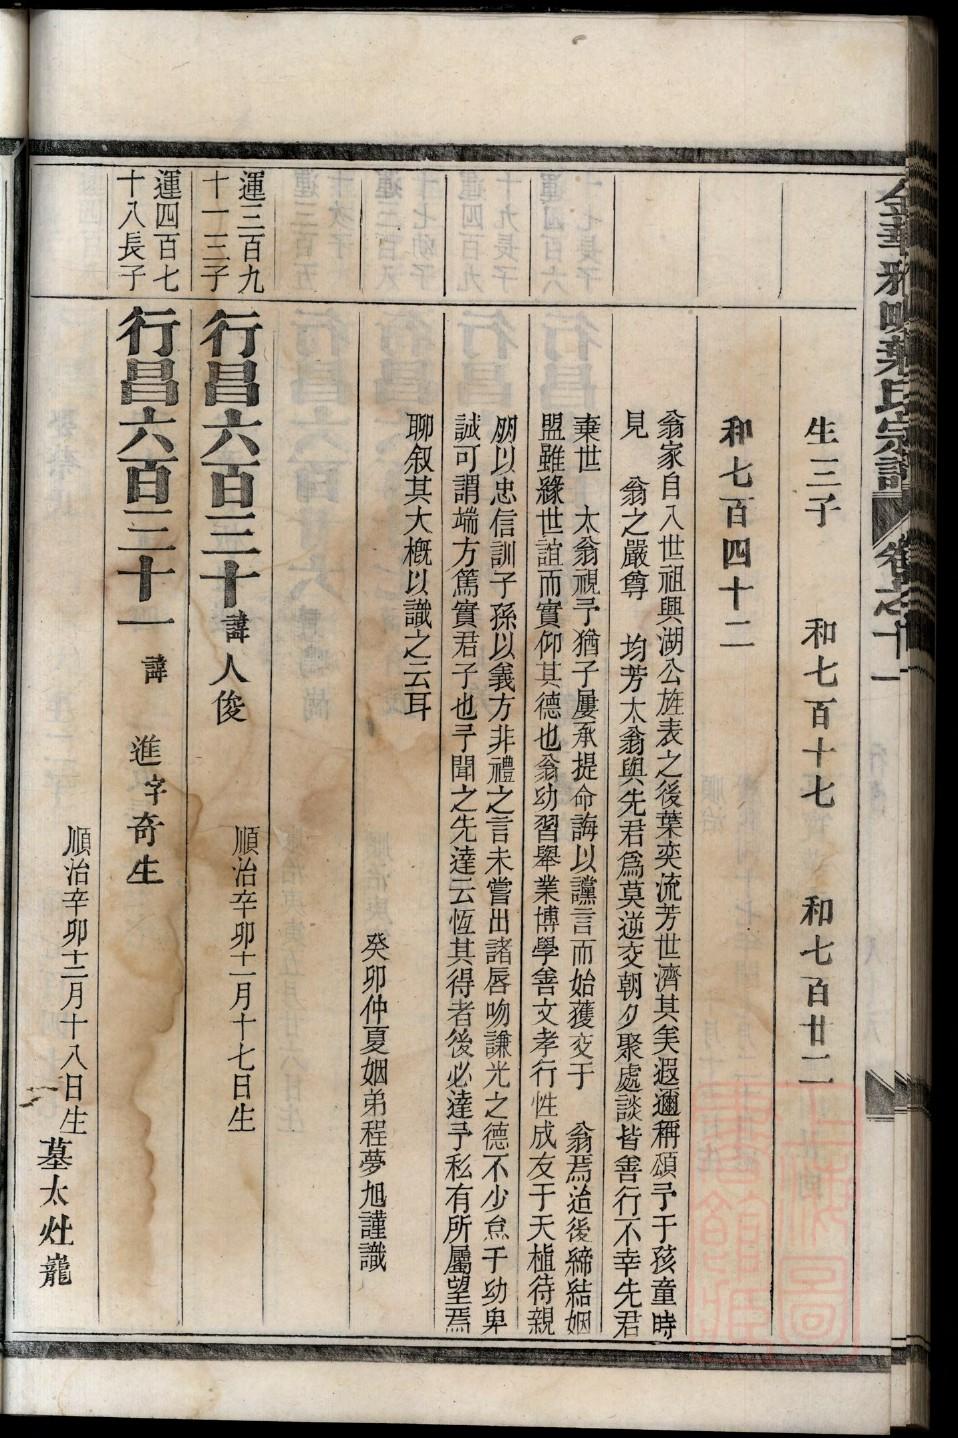 金華雅畈葉氏宗譜 卷之十一
生三子 和七百十七 和七百廿二
和七百四十二
翁家自入世祖興湖公旌表之後葉奕流芳世濟其美遐邇稱頌予于孩童時
見 翁之嚴尊 均芳太翁與先君爲莫逆交朝夕聚處談皆善行不幸先君
棄世 太翁視予猶子屢承提命誨以讜言而始獲交于 翁焉迨後締結姻
盟雖緣世誼而實仰其德也翁幼習舉業博學善文孝行性成友于天植待親
朋以忠信訓子孫以義方非禮之言未嘗出諸唇吻謙光之德不少怠于幼卑
誠可謂端方篤實君子也予聞之先達云恆其得者後必達予私有所屬望焉
聊叙其大概以識之云耳
癸卯仲夏姻弟程夢旭謹識
運三百九
十一三子
行昌六百三十 諱人俊
順治辛卯十一月十七日生
運四百七
十八長子
行昌六百三十一 諱進字奇生
順治辛卯十二月十八日生 墓太灶嶐